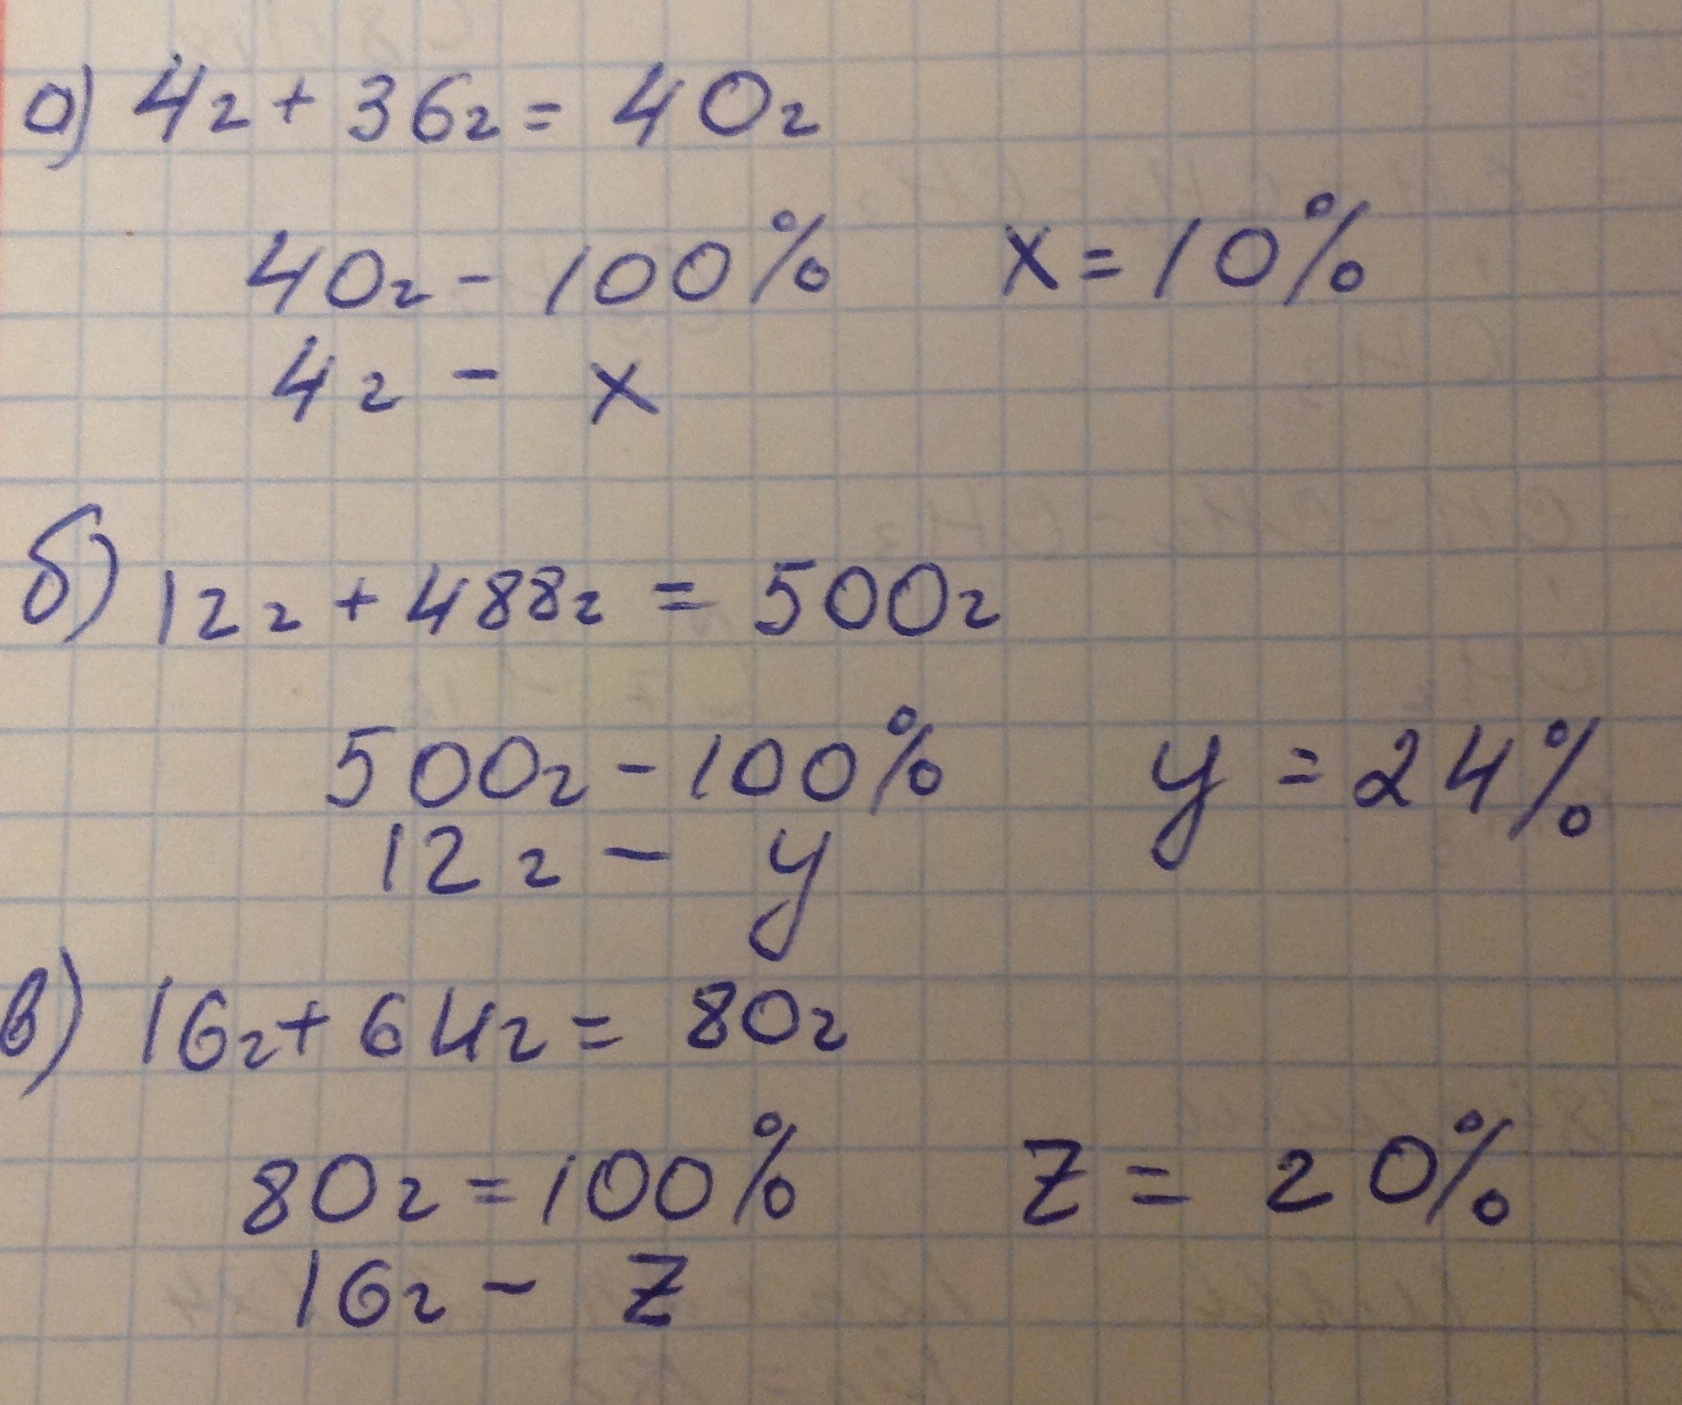 а) 4г + 36г = 40г
40г - 100% x = 10%
4г - x
б) 12г + 488г = 500г
500г - 100% y = 24%
12г - y
в) 16г + 64г = 80г
80г = 100% z = 20%
16г - z